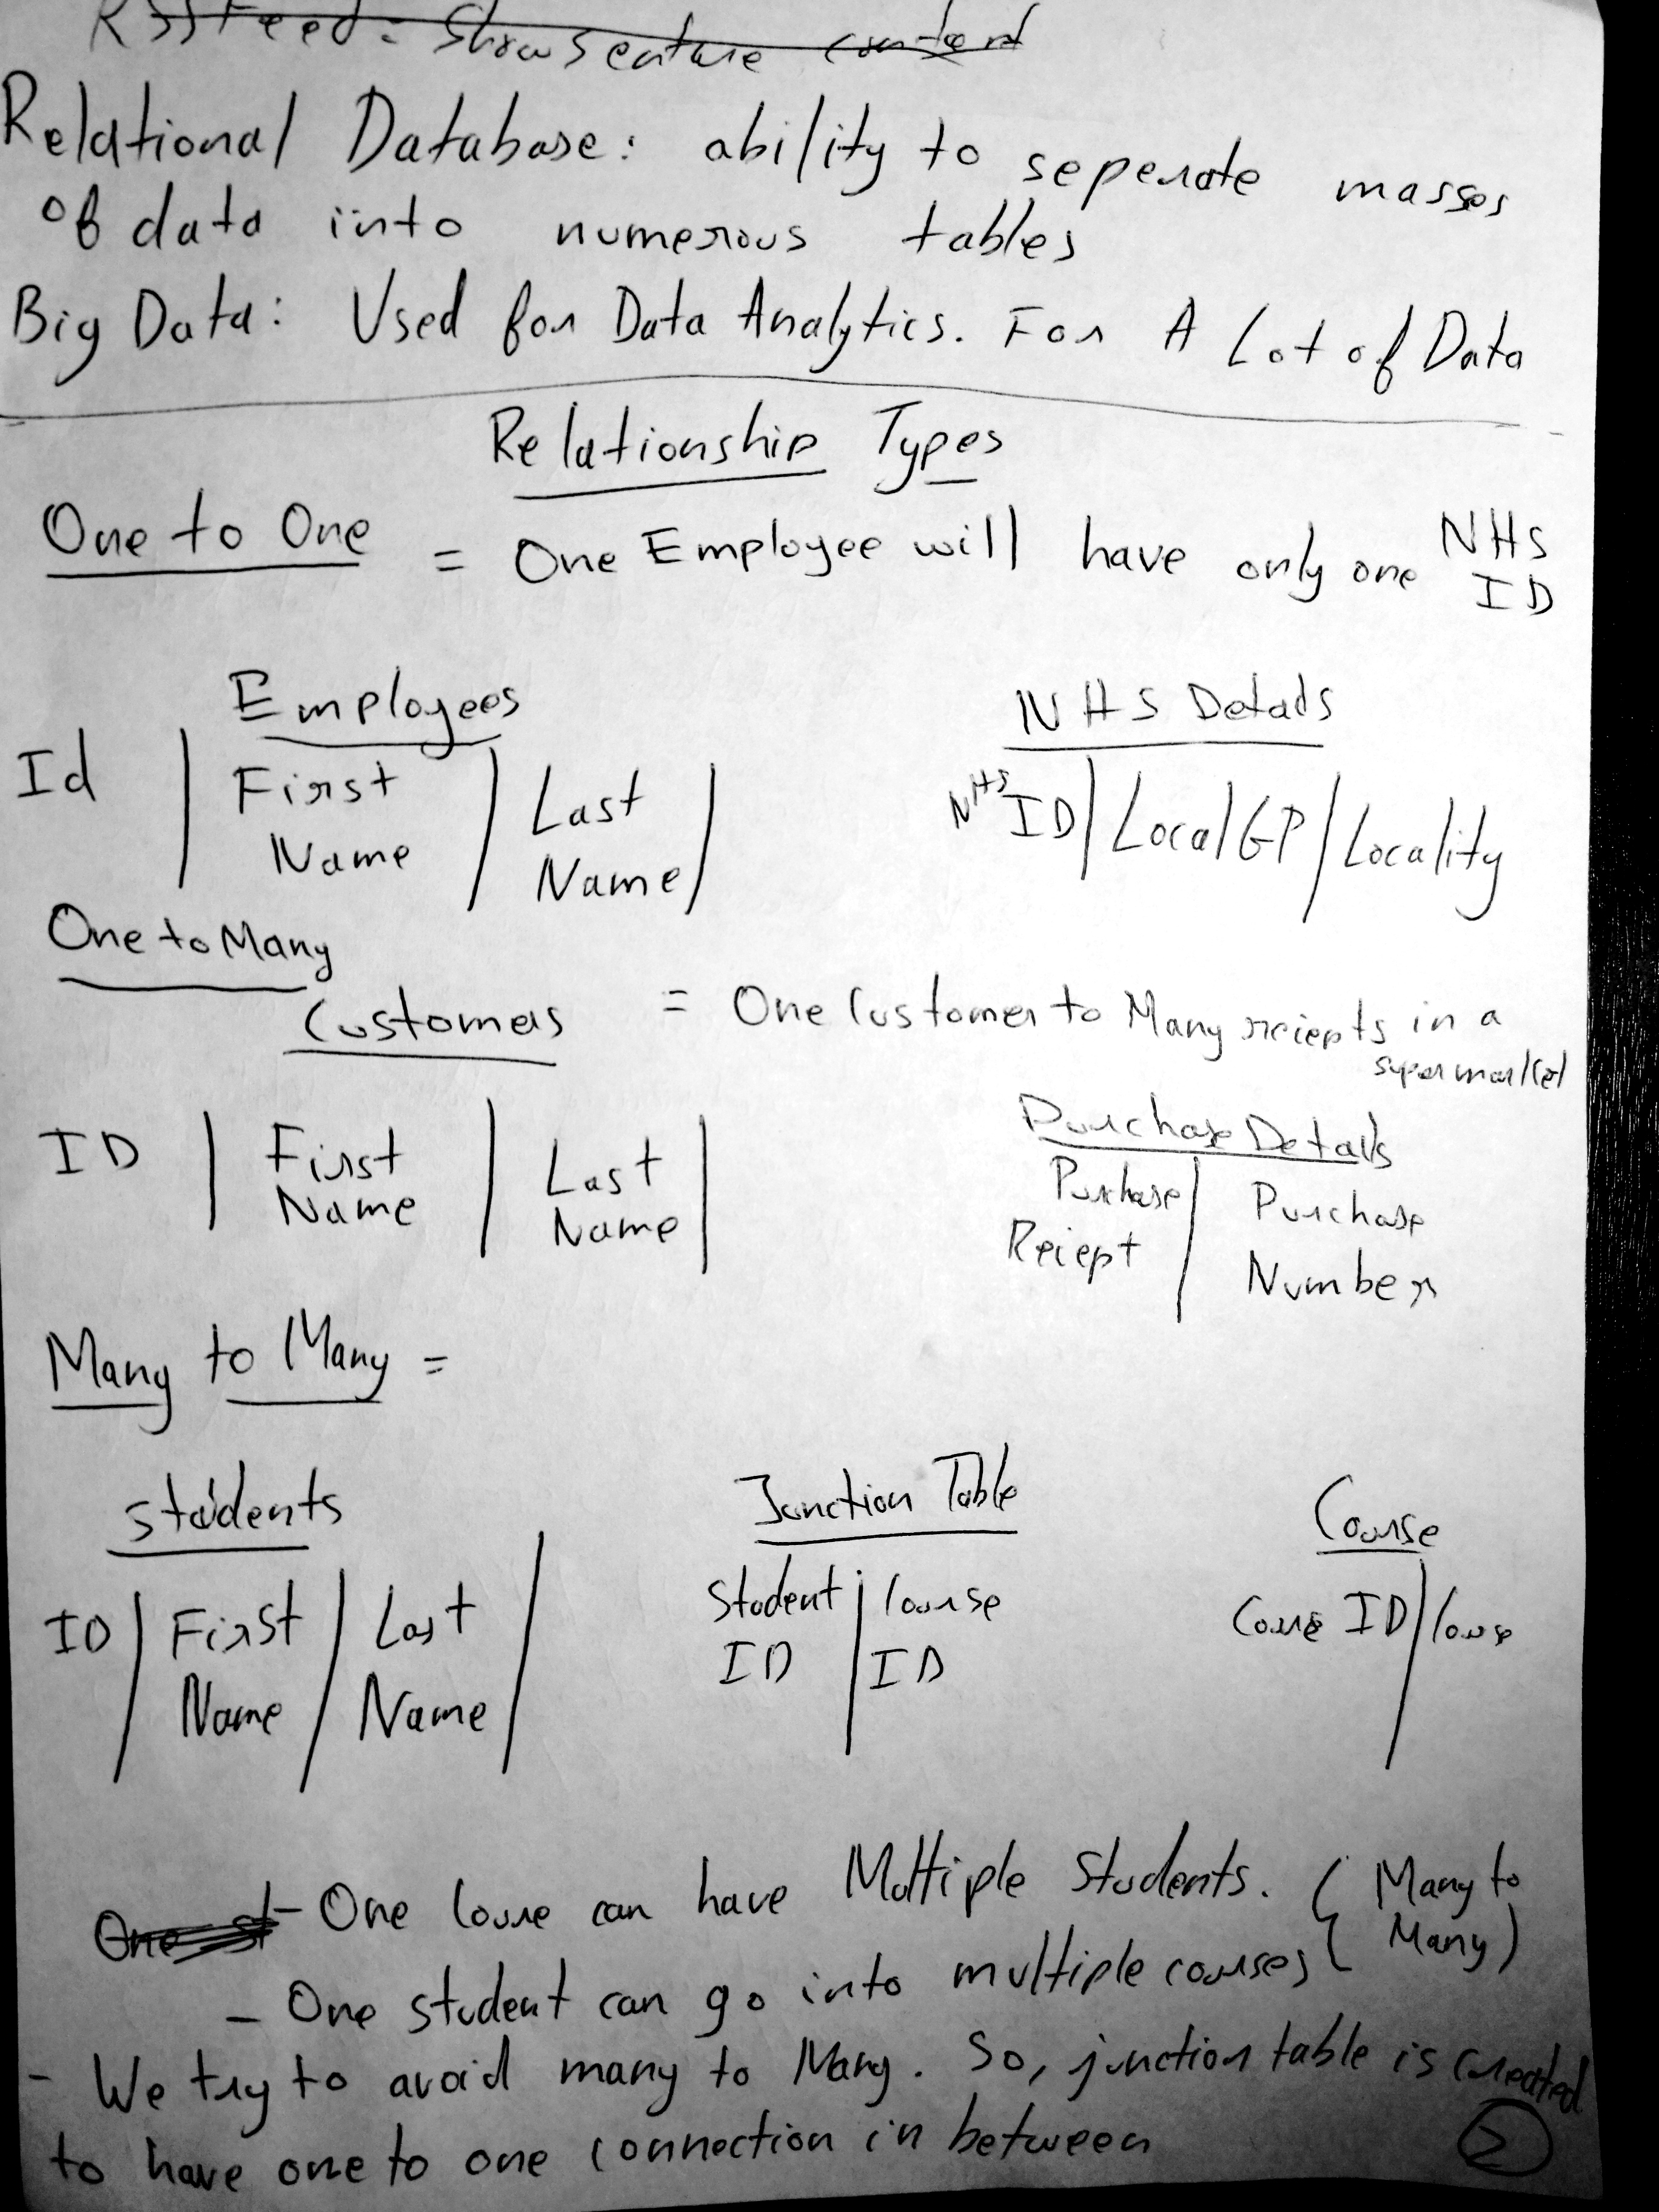 RSS Feed = Shows entire content
Relational Database: ability to seperate masses
of data into numerous tables
Big Data: Used for Data Analytics. For A Lot of Data
Relationship Types
One to One = One Employee will have only one NHS
ID
Employees
NHS Details
Id | First | Last |
Name Name
NHS ID | Local GP | Locality
One to Many
Customers = One Customer to Many reciepts in a
supermarket
ID | First | Last |
Name Name
Purchase Details
Purchase | Purchase
Reciept Number
Many to Many =
Students
Junction Table
Course
ID | First | Last |
Name Name
Student | Course
ID | ID
Course ID | Course
- One Course can have Multiple Students. (Many to
- One student can go into multiple courses Many)
- We try to avoid many to Many. So, junction table is created
to have one to one connection in between
2